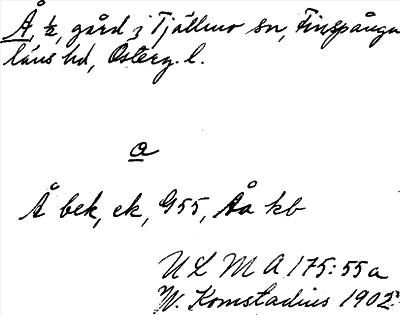 Å, 1/2, gård i Tjällmo sn, Finspånga
läns hd, Österg. l.
a
Å bek, ek, G55, Aa kb
ULMA 175:55a
W. Komstadius 1902